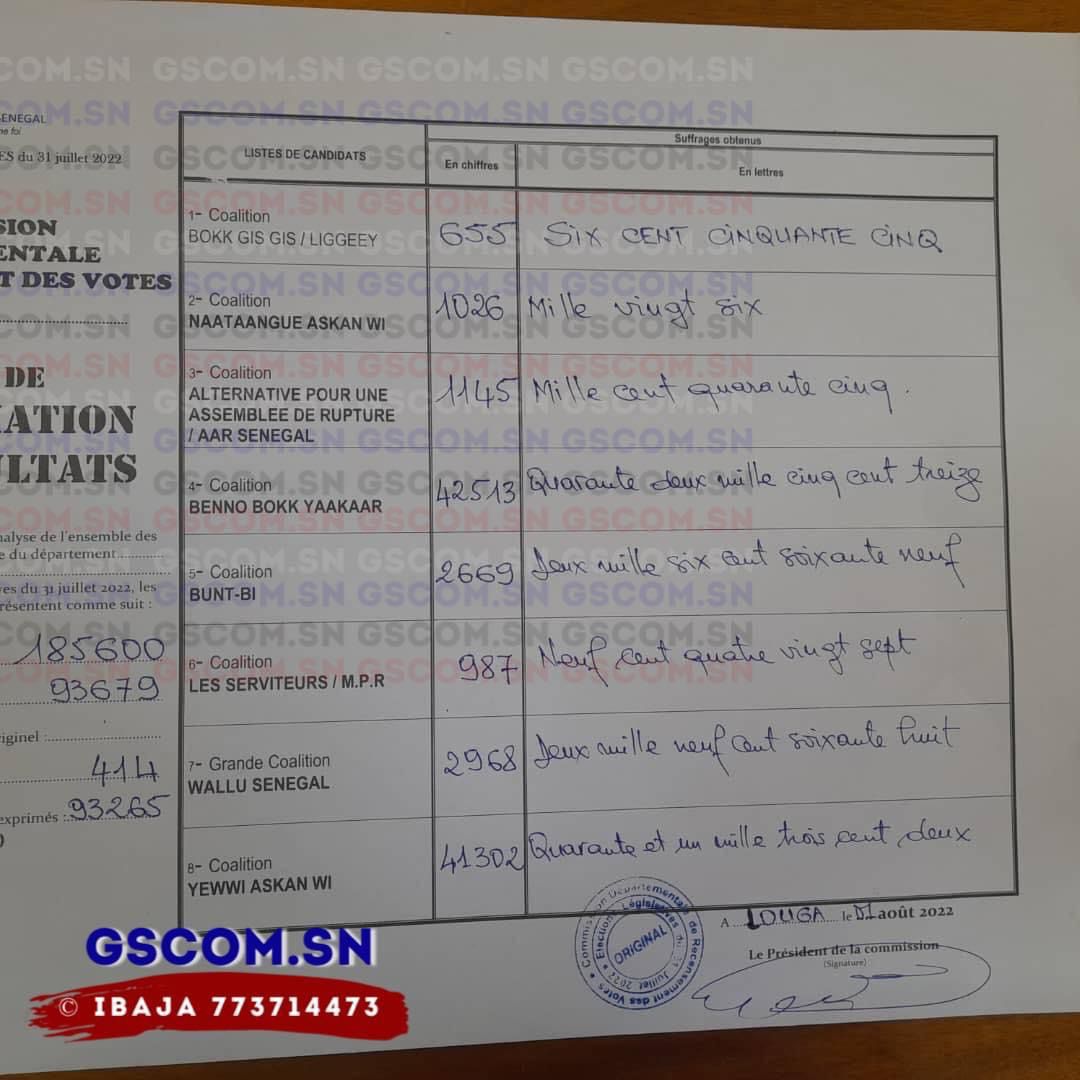 GSCOM.SN GSCOM.SN GSCOM.SN
GSCOM.SN GSCOM.SN GSCOM.SN
SENEGAL
ne foi
ES du 31 juillet 2022
SION
ENTALE
T DES VOTES
DE
ATION
ULTATS
nalyse de l'ensemble des
e du département
ves du 31 juillet 2022, les
résentent comme suit :
185600
93679
riginel :
414
exprimés : 93265
LISTES DE CANDIDATS
Suffrages obtenus
En chiffres
En lettres
1- Coalition
BOKK GIS GIS / LIGGEEY
655 SIX CENT CINQUANTE CINQ
2- Coalition
NAATAANGUE ASKAN WI
1026 Mille vingt six
3- Coalition
ALTERNATIVE POUR UNE
ASSEMBLEE DE RUPTURE
/ AAR SENEGAL
1145 Mille cent quarante cinq.
4- Coalition
BENNO BOKK YAAKAAR
42513 Quarante deux mille cinq cent treize
5- Coalition
BUNT-BI
2669 Deux mille six cent soixante neuf
6- Coalition
LES SERVITEURS / M.P.R
987 Neuf cent quatre vingt sept
7- Grande Coalition
WALLU SENEGAL
2968 Deux mille neuf cent soixante huit
8- Coalition
YEWWI ASKAN WI
41302 Quarante et un mille trois cent deux
Commission Départementale de Recensement des Votes
Election Législatives du 31 Juillet 2022
ORIGINAL
A LOUGA le 01 août 2022
Le Président de la commission
(Signature)
GSCOM.SN
© IBAJA 773714473